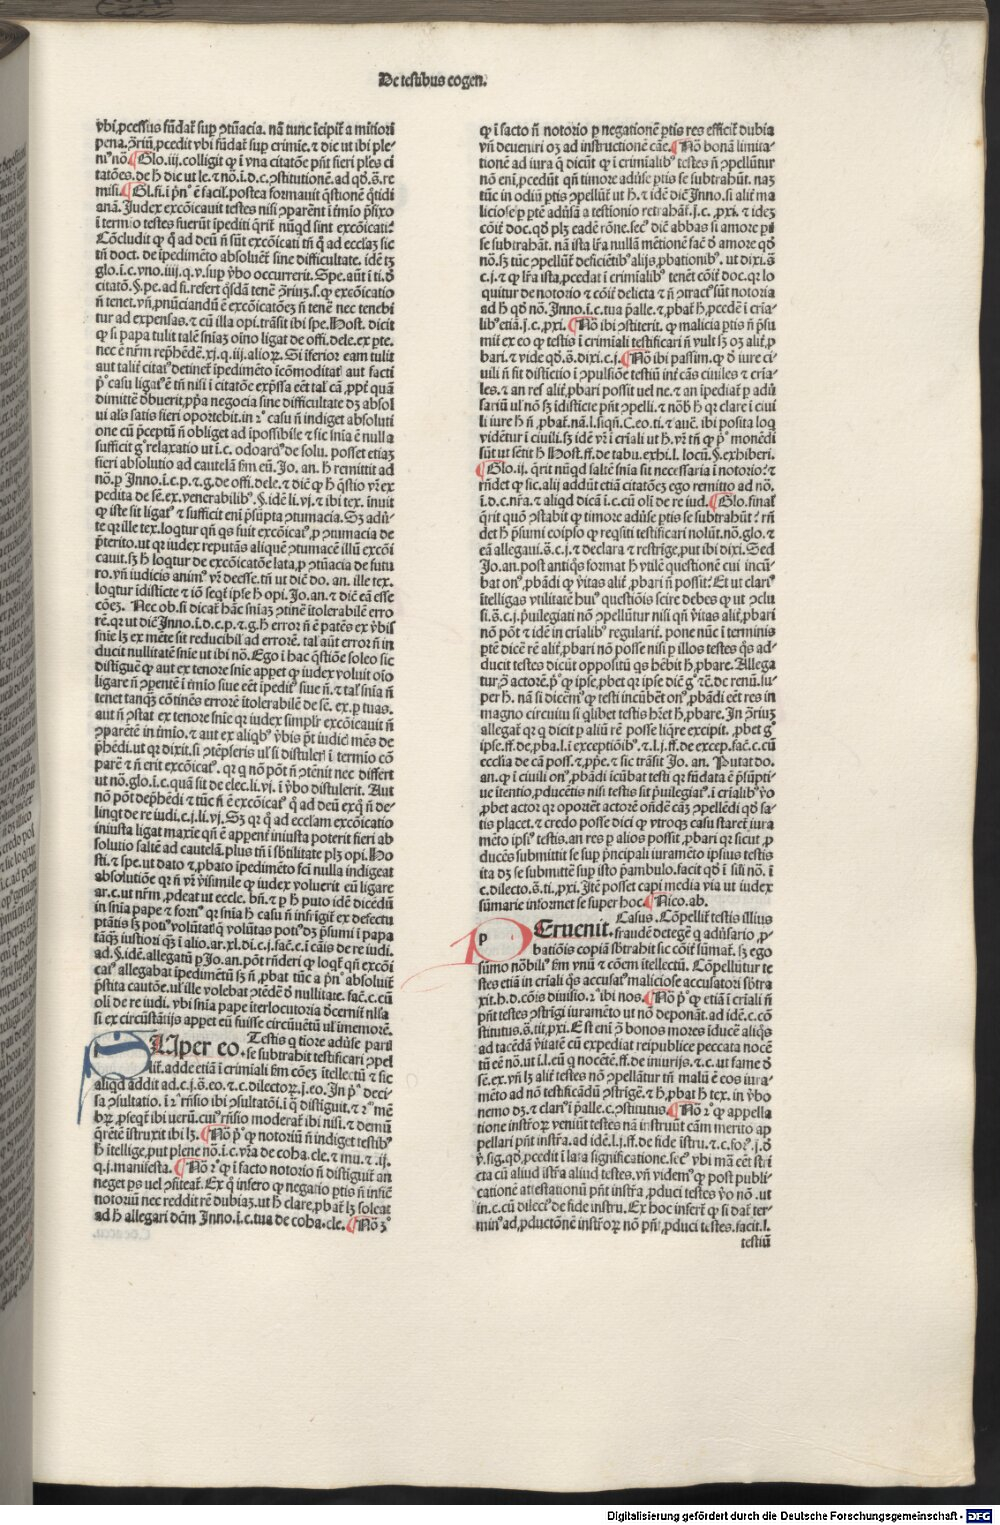 De testibus cogen.
vbi ꝓcessus fūdat᷑ suꝑ ꝯtūacia. nā tunc īcipit᷑ a mitiori
pena. ꝯ̄riū ꝓcedit vbi fūdat᷑ suꝑ crimīe. ⁊ dic ut ibi ple-
niꝰ nō. ¶ Glo. iij. colligit ꝙ ī vna citatōe pn̄t fieri pl'es ci
tatōes. de h̄ dic ut le. ⁊ nō. ī. d. c. ꝯstitutionē. ad qd̄. s̄. re
misi. ¶ Gl. fi. ī pn̄° ē facil'. postea formauit q̄stionē q̄tidi
anā. Judex excōicauit testes nisi ꝯparent ī t̄mīo p̄fixo
ī termīo testes fuerūt īpediti q̄rit᷑ nūqd sint excōicati?
Cōcludit ꝙ q° ad deū n̄ sūt excōicati tn̄ q° ad eccl'az sic
tn̄ doct. de īpedimēto absoluēt᷑ sine difficultate. idē tꝫ
glo. ī. c. vno. iiij. q. v. sup ṽbo occurrerit. Spe. aūt ī ti. d̄
citatō. §. pe. ad fi. refert q̄sdā tenē ꝯ̄riuꝫ. s. ꝙ excōicatio
n̄ tenet. vn̄ ꝓnūciandū ē excōicatōeꝫ n̄ tenē nec tenebi
tur ad expensas. ⁊ cū illa opi. trāsit ibi spe. Host. dicit
ꝙ si papa tulit talē sn̄iaꝫ oīno ligat de offi. dele. ex ꝑte.
nec ē n̄rm rep̄hēdē. xj. q. iij. alioꝝ. Si īferior eam tulit
aut talit᷑ citatꝰ detinet᷑ īpedimēto īcōmoditat᷑ aut facti
p° casu ligatꝰ ē tn̄ nisi ī citatōe exp̄ssa eēt tal' cā ꝓpt᷑ quā
dimittē dbuerit ꝓpa negocia sine difficultate dꝫ absol
ui als satis fieri oportebit. in 2° casu n̄ indiget absoluti
one cū p̄ceptū n̄ obliget ad īpossibile ⁊ sic sn̄ia ē nulla
sufficit gͦ relaxatio ut ī. c. odoardꝰ de solu. posset etiaꝫ
fieri absolutio ad cautelā fm eū. Jo. an. h̄ remittit ad
nō. ꝑ Inno. ī. c. p. t. g. de offi. dele. ⁊ dic ꝙ h̄ q̄stio vr̄ ex
pedita de sē. ex. venerabilibꝰ. §. idē li. vj. ⁊ ibi tex. īnuit
ꝙ iste sit ligatꝰ ⁊ sufficit eni p̄supta ꝯtumacia. Sꝫ adu'-
te qr ille tex. loqtur qn̄ qs fuit excōicatꝰ ꝓ ꝯtumacia de
p̄terito. ut qr iudex reputās aliquē ꝯtumacē illū excōi
cauit. sꝫ h̄ loqtur de excōicatōe lata ꝓ ꝯtūacia de futu
ro. vn̄ iudicis animꝰ vr̄ deesse. tn̄ ut dic̄ do. an. ille tex.
loqtur īdisticte ⁊ iō seqt᷑ ipse h̄ opi. Jo. an. ⁊ dic̄ eā esse
cōeꝫ. Nec ob. si dicat᷑ hāc sn̄iaꝫ ꝯtinē ītolerabilē erro
rē. qr ut dic̄ Inno. ī. d. c. p. t. g. h̄ error n̄ ē patēs ex ṽbis
sn̄ie lꝫ ex mēte sit reducibil' ad errorē. tal' aūt error n̄ in
ducit nullitatē sn̄ie ut ibi nō. Ego ī hac q̄stiōe soleo sic
distiguē ꝙ aut ex tenore sn̄ie appet ꝙ iudex voluit oīo
ligare n̄ ꝯꝑentē ī t̄mīo siue eēt īpeditꝰ siue n̄. ⁊ tal' sn̄ia n̄
tenet tanqꝫ cōtinēs errorē ītolerabilē de sē. ex. p tuas.
aut n̄ ꝯstat ex tenore sn̄ie qr iudex simplr excōicauit n̄
ꝯparētē in t̄mīo. ⁊ aut ex aliqbꝰ ṽbis pt̄ iudicꝭ mēs de
p̄hēdi. ut qr dixit. si ꝯtēpseris ul' si distuleri ī termīo cō
parē ⁊ n̄ erit excōicatꝰ. qr q nō pōt n̄ ꝯtēnit nec differt
ut nō. glo. ī. c. quā sit de elec. li. vj. ī ṽbo distulerit. Aut
nō pōt dep̄hēdi ⁊ tūc n̄ ē excōicatꝰ q° ad deū exq̄ n̄ de-
linqt de re iudi. c. j. li. vj. Sꝫ qr q° ad ecclam excōicatio
iniusta ligat maxīe qn̄ ē apparent᷑ iniusta poterit fieri ab
solutio saltē ad cautelā. plus tn̄ ī sbtilitate plꝫ opi. Ho
sti. ⁊ spe. ut dato ⁊ ꝓbato īpedimēto sc̄i nulla indigeat
absolutiōe qr n̄ vr̄ v̄isimile ꝙ iudex voluerit eū ligare
ar. c. ut nr̄m. ꝓdeat ut eccle. bn̄. ⁊ p h̄ puto idē dicēdū
in sn̄ia pape ⁊ fortiꝰ qr sn̄ia h̄ casu n̄ infrīgit᷑ ex defectu
ptātis sꝫ potiꝰ volūtatis qꝫ volūtas potiꝰ dꝫ p̄sumi ī papa
tāqꝫ iustiori qꝫ ī alio. ar. xl. di. c. j. faē. c. ī cāis de re iudi.
ad. §. idē. allegatū ꝑ Jo. an. pōt rn̄deri ꝙ loqt᷑ qn̄ excōi
catꝰ allegabat īpedimētū sꝫ n̄ ꝓbat tūc a pn̄° absoluit᷑
p̄stita cautōe. ul' ille volebat ꝯtēdē d̄ nullitate. faē. c. cū
oli de re iudi. vbi sn̄ia pape īterlocutoria d̄cernit᷑ nl'la
si ex circūstātijs appet eū fuisse circūuētū ul' īmemorē.
SUper eo. Testis q tiore adu'se partꝭ
se subtrahit testificari ꝯpel
lit᷑. adde etiā ī criminali fm cōeꝫ ītellectū ⁊ sic
aliqd addit ad. c. j. s̄. eo. ⁊. c. dilectoꝝ. j. eo. In p° deci-
sa ꝯsultatio. ī 2° rn̄sio ibi ꝯsultatōi. ī q° distiguit. ⁊ 2° mē
bꝝ. ꝓseqt᷑ ibi uerū. cuiꝰ rn̄sio moderat᷑ ibi nisi. ⁊ demū
q̄rētē īstruxit ibi lꝫ. ¶ Nō p° ꝙ notoriū n̄ indiget testibꝰ
h̄ itellige. put plene nō. ī. c. vr̄a de coha. cle. ⁊ mu. ⁊. ij.
q. j. manifesta. ¶ Nō 2° ꝙ ī facto notorio n̄ distiguit᷑ an
neget ps vel ꝯfiteat᷑. Ex q° infero ꝙ negatio ꝑtis n̄ infic̄
notoriū nec reddit rē dubiaꝫ. ut h̄ clare ꝓbat᷑ lꝫ soleat
ad h̄ allegari dc̄m Inno. ī. c. tua de coha. cle. ¶ Nō 3°
ꝙ ī facto n̄ notorio ꝑ negationē ꝑtis res efficit᷑ dubia
vn̄ deueniri oꝫ ad instructionē cāe. ¶ Nō bonā limita-
tionē ad iura q̄ dicūt ꝙ ī crimīalibꝰ testes n̄ ꝯpellūtur
nō eni ꝓcedūt qn̄ timore adu'se ꝑtis se subtrahūt. naꝫ
tūc in odiū ptis ꝯpellūt᷑ ut h̄. ⁊ idē dic̄ Inno. si alit᷑ ma
liciose ꝑ ptē adu'sā a testionio retrahāt᷑. j. c. ꝓxi. ⁊ ideꝫ
cōit᷑ doc. qd̄ plꝫ eadē rōne. secꝰ dic̄ abbas si amore ꝑtis
se subtrahāt. nā ista lr̄a nullā mētionē fac̄ d̄ amore qd̄
nō. sꝫ tūc ꝯpellūt᷑ deficiētibꝰ alijs ꝓbationibꝰ. ut dixi. s̄.
c. j. ⁊ ꝙ lr̄a ista ꝓcedat ī crimīalibꝰ tenēt cōit᷑ doc. qr lo
quitur de notorio ⁊ cōit᷑ delicta ⁊ n̄ ꝯtractꝰ sūt notoria
ad h̄ qd̄ nō. Inno. ī. c. tua p̄alle. ⁊ ꝓbat᷑ h̄ ꝓcedē ī cria-
libꝰ etiā. j. c. ꝓxi. ¶ Nō ibi ꝯstiterit. ꝙ malicia ptis n̄ p̄su
mit᷑ ex eo ꝙ testis ī criminali testificari n̄ vult sꝫ oꝫ alit᷑ ꝓ
bari. ⁊ vide qd̄. s̄. dixi. c. j. ¶ Nō ibi passim. ꝙ d̄ iure ci-
uili n̄ fit distictio ī ꝯpulsiōe testiū int᷑ cās ciuiles ⁊ cria-
les. ⁊ an res alit᷑ ꝓbari possit vel ne. ⁊ an īpediat᷑ ꝑ adu'
sariū ul' nō sꝫ īdisticte pn̄t ꝯpelli. ⁊ nōb̄ h̄ qr clare ī ciui
li iure h̄ n̄ ꝓbat᷑. nā. l. siqn̄. C. eo. ti. ⁊ autē. ibi posita loq
videtur ī ciuili. sꝫ idē vr̄ ī cri̅ali ut h̄. vr̄ tn̄ ꝙ p° monēdi
sūt ut sētit h̄ Host. ff. de tabu. exhi. l. locū. §. exhiberi.
¶ Glo. ij. q̄rit nūqd saltē sn̄ia sit necessaria ī notorio? ⁊
rn̄det ꝙ sic. alij addūt etiā citatōeꝫ ego remitto ad nō.
ī. d. c. nr̄a. ⁊ aliqd dicā ī. c. cū olī de re iud. ¶ Glo. final'
q̄rit quō ꝯstabit ꝙ timore adu'se ptis se subtrahūt? rn̄
det h̄ p̄sumi eoip̄o ꝙ reqsiti testificari nolūt. nō. glo. ⁊
eā allegaui. s̄. c. j. ⁊ declara ⁊ restrīge. put ibi dixi. Sed
Jo. an. post antiqs format h̄ vtilē questionē cui incū-
bat onꝰ ꝓbādi ꝙ v̄itas alit᷑ ꝓbari n̄ possit? Et ut clariꝰ
ītelligas vtilitatē huiꝰ questiōis scire debes ꝙ ut ꝯclu
si. s̄. c. j. p̄uilegiati nō ꝯpellūtur nisi qn̄ v̄itas alit᷑ ꝓbari
nō pōt ⁊ idē in cri̅alibꝰ regularit᷑. pone nūc ī terminis
ptē dicē rē alit᷑ ꝓbari nō posse nisi ꝑ illos testes q̄s ad-
ducit testes dicūt oppositū qs hēbit h̄ ꝓbare. Allega
tur ꝓ actorē. p° ꝙ ip̄e ꝓbet qr ip̄e dic̄ gͦ rc̄. de renū. su-
per h̄. nā si dicem' ꝙ testi incūbēt onꝰ ꝓbādi eēt res in
magno circuitu si qlibet testis hēt h̄ ꝓbare. In ꝯ̄riuꝫ
allegat᷑ qr q dicit ꝑ aliū rē posse liq̄re excipit. ꝓbet gͦ
ip̄e. ff. de ꝓba. l. ī exceptiōibꝰ. ⁊. l. j. ff. de excep. faē. c. cū
ecclia de cā poss. ⁊ ꝓpe. ⁊ sic trāsit Jo. an. Putat do.
an. ꝙ ī ciuili onꝰ ꝓbādi īcūbat testi qr fūdata ē p̄sūpti-
ue ītentio ꝓducētis nisi testis sit p̄uilegiatꝰ. ī cri̅alibꝰ ṽo
ꝓbet actor qr oportet actorē on̄dē cāꝫ ꝯpellēdi qd̄ sa-
tis placet. ⁊ credo posse dici ꝙ vtroqꝫ casu staret᷑ iura
mēto ip̄iꝰ testis. an res ꝑ alios possit ꝓbari qr sicut ꝓ
ducēs submittit se suꝑ p̄ncipali iuramēto ip̄ius testis
ita dꝫ se submittē suꝑ isto p̄ambulo. facit qd̄ ī sili nō. ī
c. dilecto. s̄. ti. ꝓxi. Itē posset capi media via ut iudex
sūmarie informet se super hoc. ¶ Nico. ab.
p
PEruenit. Casus. Cōpellit᷑ testis illius
fraudē detegē q adu'sario ꝓ-
batiōis copiā sbtrahit sic cōit᷑ sūmat᷑. sꝫ ego
sūmo nōbiliꝰ fm vnū ⁊ cōem ītellectū. Cōpellūtur te
stes etiā in criali qs accusatꝰ maliciose accusatori sbtra
xit. h. d. cōis diuisio. 2ª ibi nos. ¶ Nō p° ꝙ etiā ī criali n̄
pn̄t testes ꝯstrīgi iuramēto ut nō deponāt. ad idē. c. cō
stitutus. s̄. tit. ꝓxi. Est eni ꝯ̄ bonos mores īducē aliqs
ad tacēdā v̄itatē cū expediat reipublice peccata nocē
tū eē nō. ut ī. l. eū q nocētē. ff. de iniurijs. ⁊. c. ut fame d̄
sē. ex. vn̄ lꝫ alit᷑ testes nō ꝯpellātur tn̄ malū ē eos iura-
mēto ad nō testificādū ꝯstrīgē. ⁊ h̄ ꝓbat h̄ tex. in ṽbo
nemo dꝫ. ⁊ clariꝰ ī p̄alle. c. ꝯstitutus. ¶ Nō 2° ꝙ appella
tione instr̄oꝝ veniūt testes nā instruūt cām merito ap
pellari pn̄t instr̄a. ad idē. l. j. ff. de fide īstru. ⁊. c. forꝰ. j. d̄
ṽ. sig. qd̄ ꝓcedit ī lata significatione. secꝰ vbi mā eēt stri
cta cū aliud istr̄a aliud testes. vn̄ videmꝰ ꝙ post publi-
cationē attestationū pn̄t instr̄a ꝓduci testes ṽo nō. ut
in. c. cū dilectꝰ de fide instru. Ex hoc infert᷑ ꝙ si dat᷑ ter-
minꝰ ad ꝓductionē instr̄oꝝ nō pn̄t ꝓduci testes. facit. l.
testiū
Digitalisierung gefördert durch die Deutsche Forschungsgemeinschaft - DFG